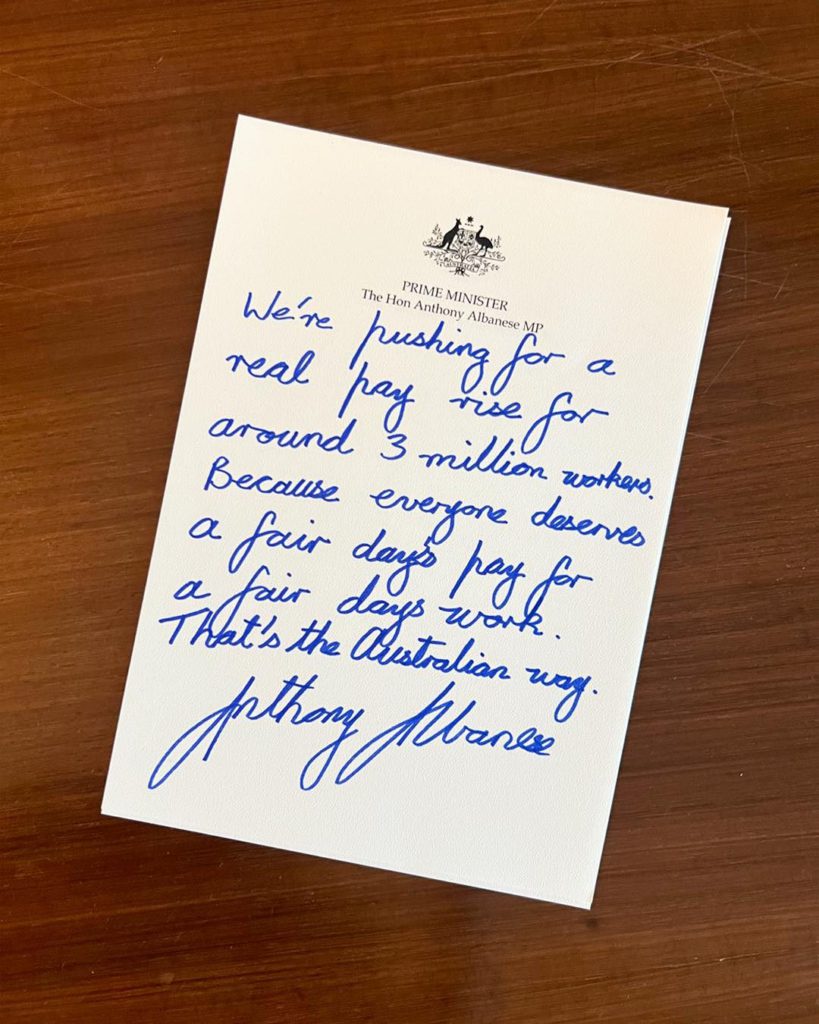 PRIME MINISTER
The Hon Anthony Albanese MP
We're pushing for a
real pay rise for
around 3 million workers.
Because everyone deserves
a fair day's pay for
a fair days work.
That's the Australian way.
Anthony Albanese